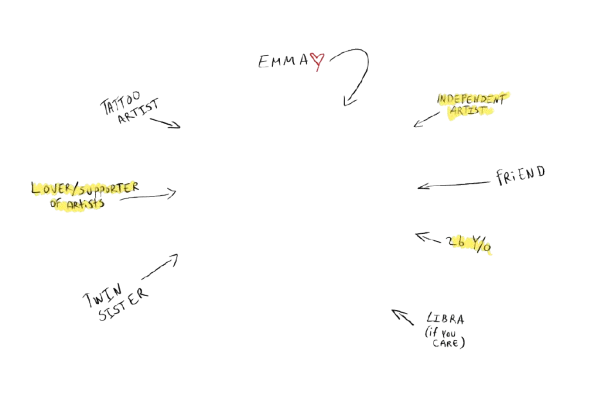 EMMA
TATTOO
ARTIST
INDEPENDENT
ARTIST
LOVER/SUPPORTER
OF ARTISTS
FRIEND
26 Y/O
TWIN
SISTER
LIBRA
(if YOU
CARE)